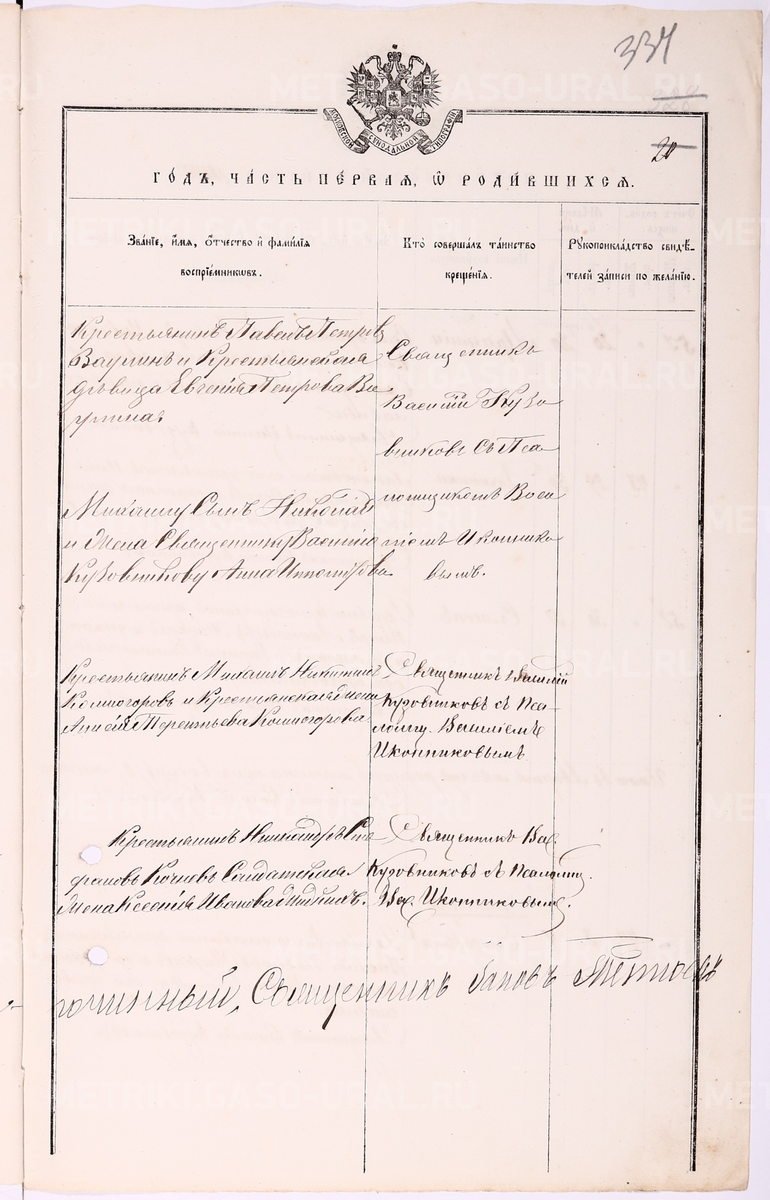 334
20
МОСКОВСКОЙ СѴНОДАЛЬНОЙ ТИПОГРАФІИ
ГО́ДЪ, ЧА́СТЬ ПЕ́РВАЯ, Ѡ҆ РОДИ́ВШИХСЯ.
Зва́нїе, и҆́мя, ѻ҆́тчество и҆ фами́лїя
воспрїе́мникѡвъ.
Кто̀ соверша́лъ та́инство
креще́нїя.
Рꙋкоприкла́дство свидѣ́-
телей за́писи по жела́нїю.
Крестьянинъ Павелъ Петровъ
Ваулинъ и Крестьянская
дѣвица Евгенія Петрова Ва
улина.
Священникъ
Василій Кузо
вниковъ съ Пса
ломщикомъ Васи
ліемъ Иконнико
вымъ.
Сынъ Николай
и Жена Священника Василія
Кузовникова Анна
Крестьянинъ Михаилъ Никитинъ
Колмогоровъ и Крестьянская жена
Анисія Терентьева Колмогорова.
Священникъ Василій
Кузовниковъ съ Пса-
ломщ. Василіемъ
Иконниковымъ
Крестьянинъ Никифоръ Сте
фановъ Кочневъ Солдатская
Жена Ксенія Иванова
Священникъ Вас.
Кузовниковъ съ Псаломщ.
Вас. Иконниковымъ.
гочинный, Священникъ